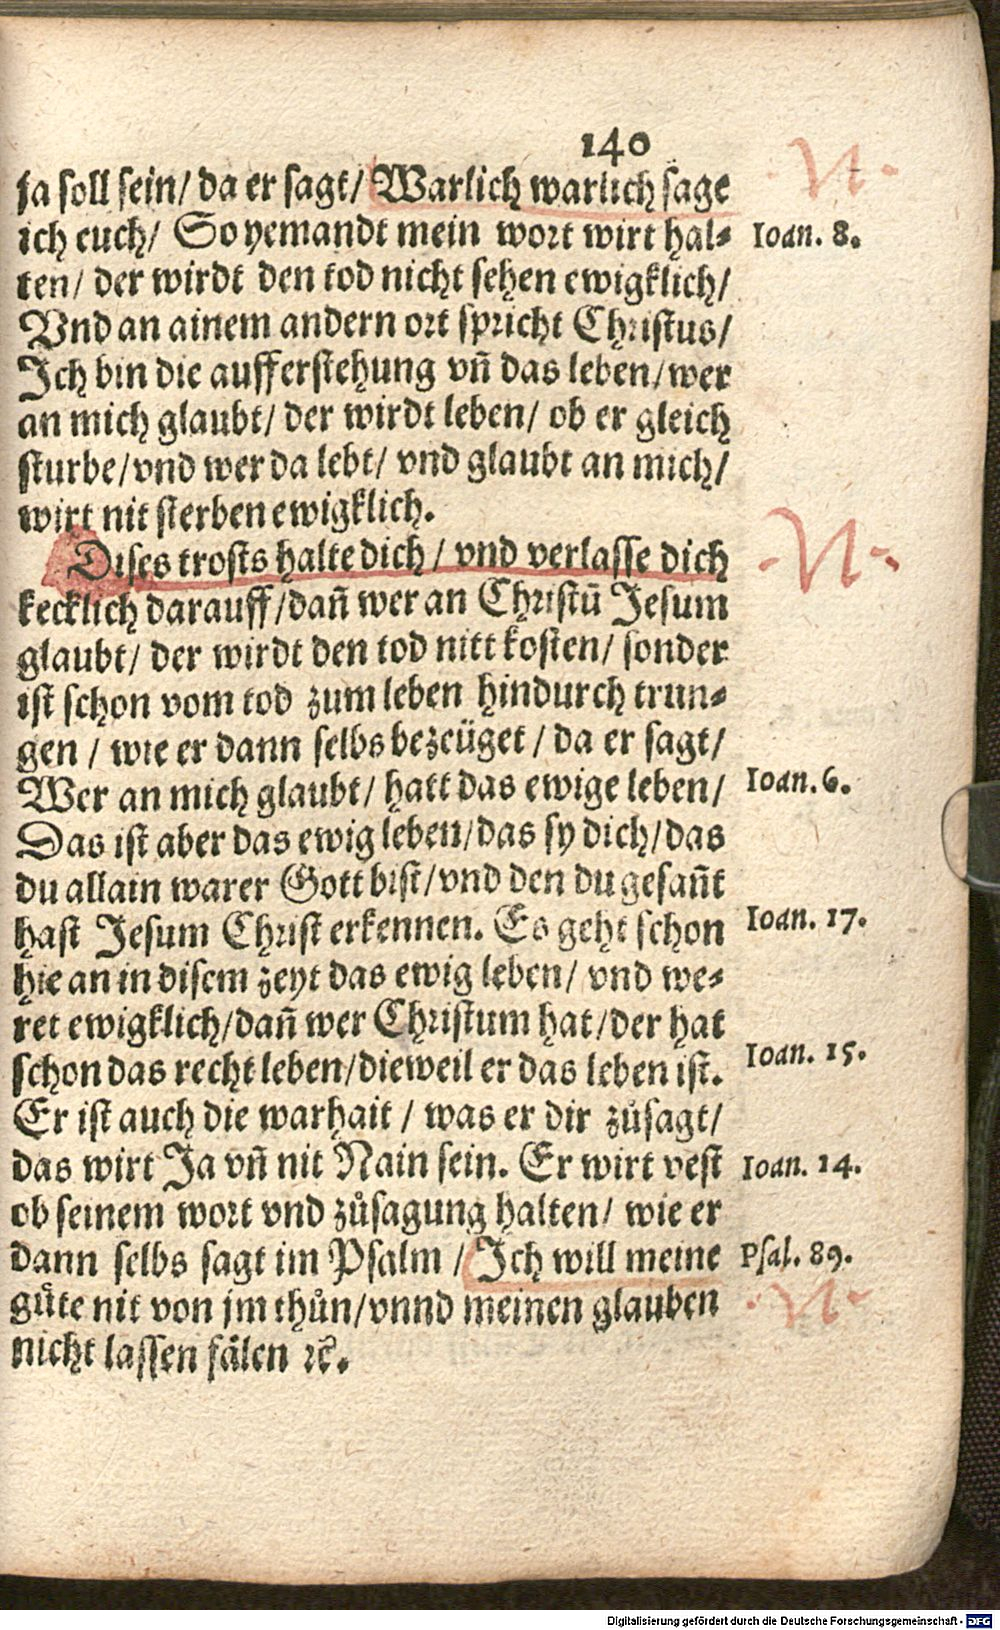 140
ja soll sein/ da er sagt/ Warlich warlich sage
ich euch/ So yemandt mein wort wirt hal⸗
Ioan. 8.
ten/ der wirdt den tod nicht sehen ewigklich/
Vnd an ainem andern ort spricht Christus/
Ich bin die aufferstehung vñ das leben/ wer
an mich glaubt/ der wirdt leben/ ob er gleich
sturbe/ vnd wer da lebt/ vnd glaubt an mich/
wirt nit sterben ewigklich.
Dises trosts halte dich/ vnd verlasse dich
kecklich darauff/ dañ wer an Christū Jesum
glaubt/ der wirdt den tod nitt kosten/ sonder
ist schon vom tod zum leben hindurch trun⸗
gen/ wie er dann selbs bezeüget/ da er sagt/
Wer an mich glaubt/ hatt das ewige leben/
Ioan. 6.
Das ist aber das ewig leben/ das sy dich/ das
du allain warer Gott bist/ vnd den du gesañt
hast Jesum Christ erkennen. Es geht schon
Ioan. 17.
hie an in disem zeyt das ewig leben/ vnd we⸗
ret ewigklich/ dañ wer Christum hat/ der hat
schon das recht leben/ dieweil er das leben ist.
Ioan. 15.
Er ist auch die warhait/ was er dir zůsagt/
das wirt Ja vñ nit Nain sein. Er wirt vest
Ioan. 14.
ob seinem wort vnd zůsagung halten/ wie er
dann selbs sagt im Psalm/ Ich will meine
Psal. 89.
gůte nit von jm thůn/ vnnd meinen glauben
nicht lassen fälen ꝛc.
Digitalisierung gefördert durch die Deutsche Forschungsgemeinschaft - DFG